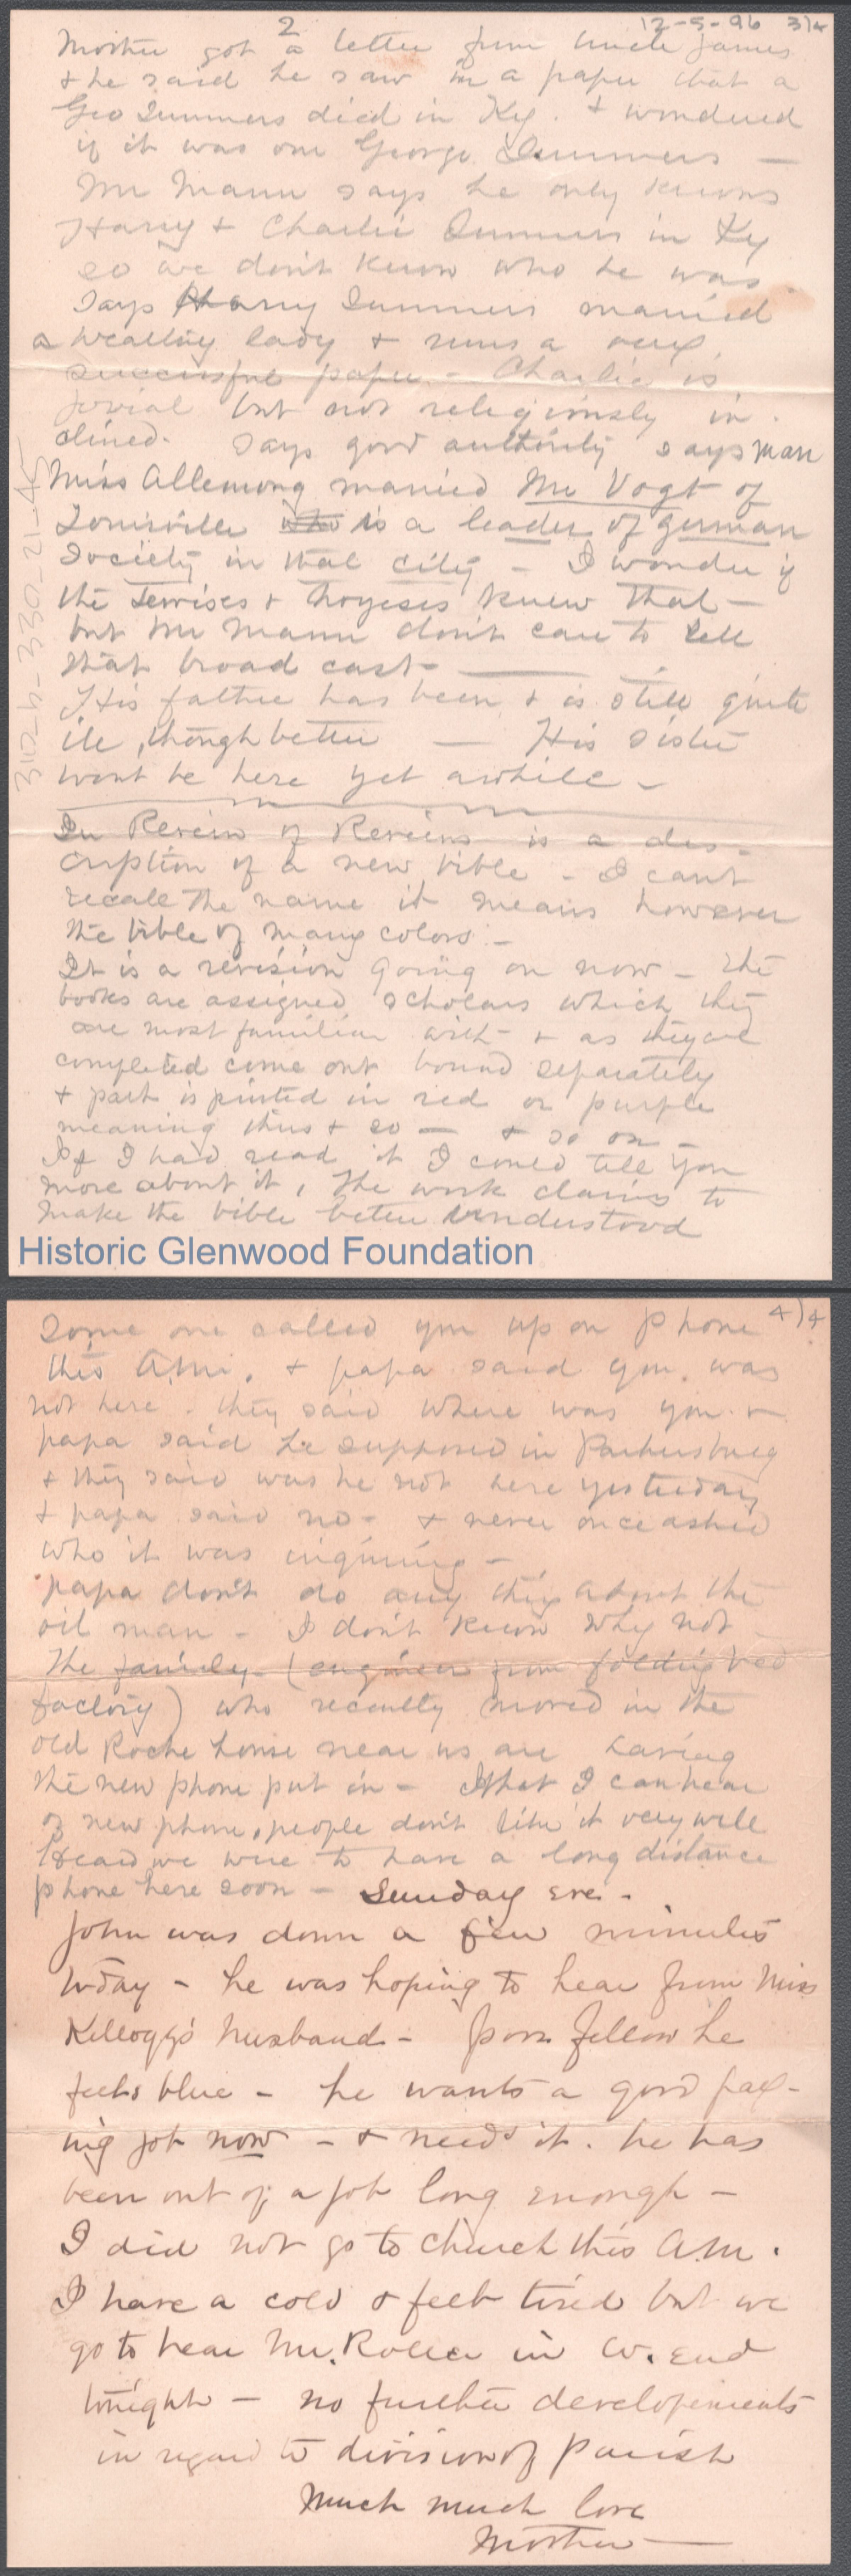 2
12-5-96 3/4
Mother got a letter from Uncle James
& he said he saw in a paper that a
Geo Summers died in Ky. & wondered
if it was our George Summers —
Mr Mann says he only knows
Harry & Charlie Summers in Ky
so we don't know who he was
Says Harry Summers married
a wealthy lady & runs a very
successful paper. — Charlie is
jovial but not religiously in-
clined. Says good authority says man
Miss Allemong married Mr Vogt of
Louisville who is a leader of german
Society in that city — I wonder if
the & knew that —
but Mr Mann don't care to tell
that broad cast —
His father has been & is still quite
ile, though better — His sister
wont be here yet awhile —
In Review of Reviews is a des-
cription of a new bible — I cant
recall the name it means however
the bible of many colors —
It is a revision going on now — the
books are assigned scholars which they
are most familiar with — & as they are
completed come out bound separately
& part is printed in red or purple
meaning thus & so — & so on —
If I had read it I could tell you
more about it, The work claims to
make the bible better understood
310-b-330-21-45
Historic Glenwood Foundation
4/4
Some one called you up on phone
this A.M. & papa said you was
not here. they said where was you &
papa said he supposed in Parkersburg
& they said was he not here yesterday
& papa said no — & never once asked
who it was inquiring —
papa don't do any thing about the
oil man — I don't know why not —
The family (engineer from folding bed
factory) who recently moved in the
old Roche house near us are having
the new phone put in — What I can hear
of new phone, people don't like it very well
Heard we were to have a long distance
phone here soon — Sunday eve.
John was down a few minutes
today — he was hoping to hear from Miss
Kellogg's husband — poor fellow he
feels blue — he wants a good pay-
ing job now — & needs it. he has
been out of a job long enough —
I did not go to church this A.M.
I have a cold & feel tired but we
go to hear Mr. Roller in W. End
tonight — no further developements
in regard to division of Parish
Much much love
Mother —